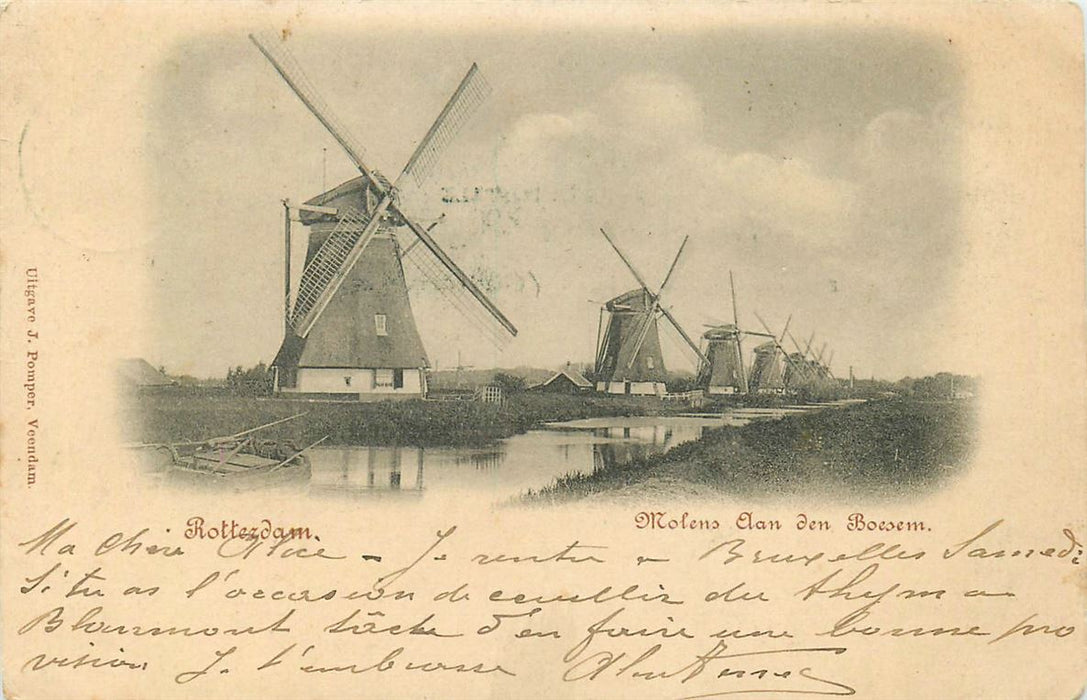 Uitgave J. Pomper, Veendam.
Rotterdam.
Molens Aan den Boesem.
Ma chère Alice - Je rentre a Bruxelles Samedi
Si tu as l'occasion de cueillir du thym a
Blanmont tâche d'en faire une bonne pro
vision. Je t'embrasse